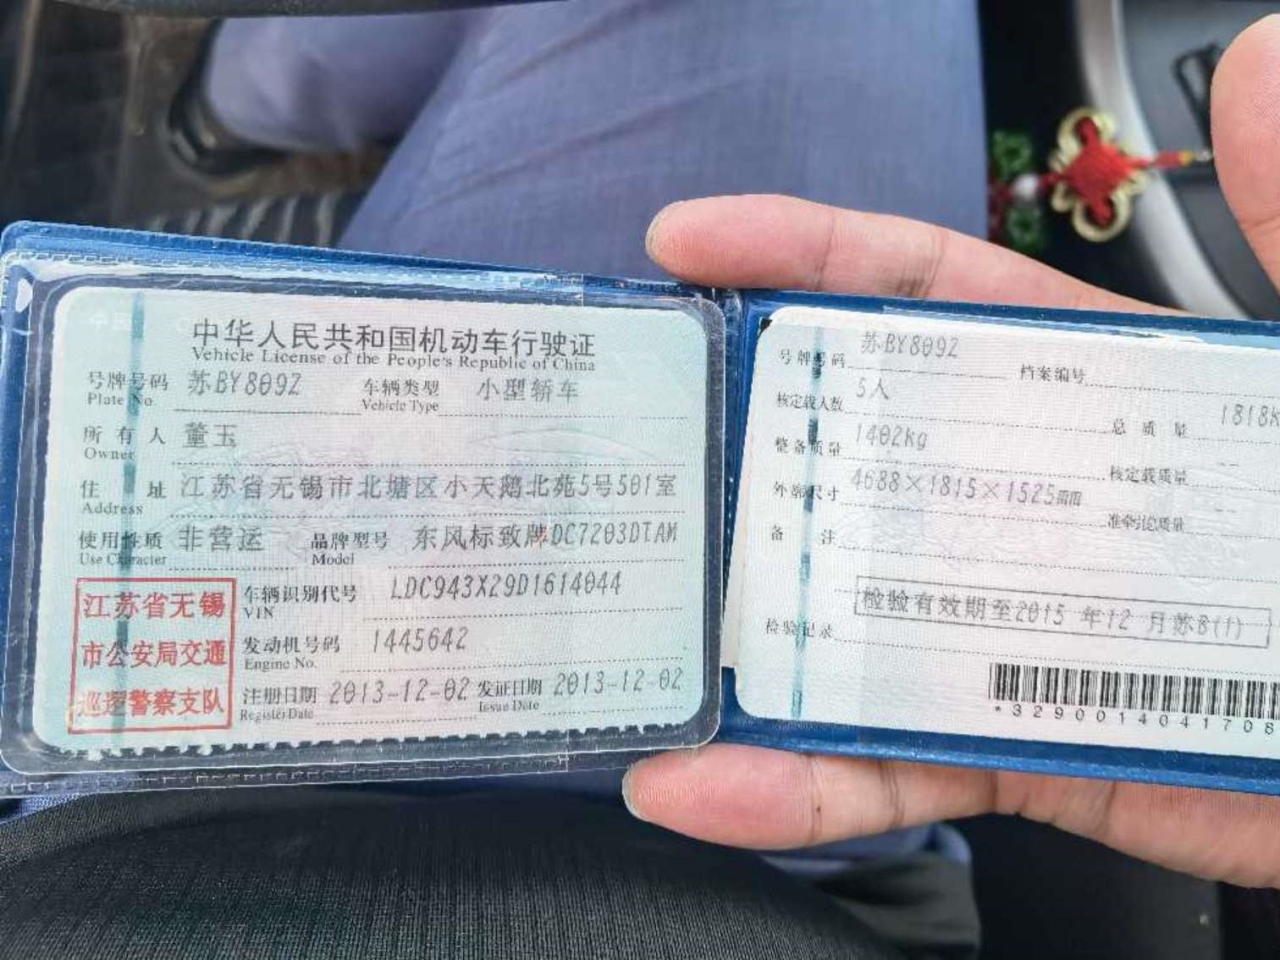 中华人民共和国机动车行驶证
Vehicle License of the People's Republic of China
号牌号码 苏BY809Z 车辆类型 小型轿车
Plate No. Vehicle Type
所有人 董玉
Owner
住址 江苏省无锡市北塘区小天鹅北苑5号501室
Address
使用性质 非营运 品牌型号 东风标致牌DC7203DTAM
Use Character Model
江苏省无锡
市公安局交通
巡逻警察支队
车辆识别代号 LDC943X29D1614044
VIN
发动机号码 1445642
Engine No.
注册日期 2013-12-02 发证日期 2013-12-02
Register Date Issue Date
号牌号码 苏BY809Z 档案编号
核定载人数 5人 总质量 1818K
整备质量 1402kg 核定载质量 --
外廓尺寸 4688×1815×1525mm 准牵引总质量 --
备注
检验有效期至2015年12月苏B(1)
检验记录
*3290014041708